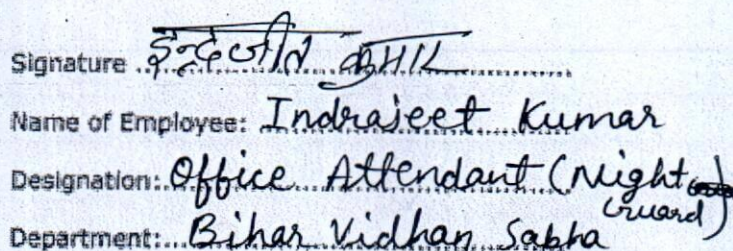 Signature इन्द्रजीत कुमार
Name of Employee: Indrajeet Kumar
Designation: Office Attendant (Night Guard)
Department: Bihar Vidhan Sabha